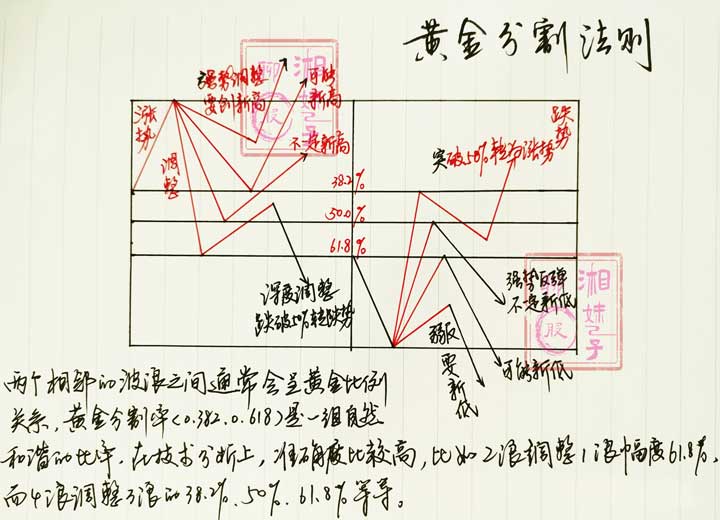 黄金分割法则
强势调整
要创新高
可能
新高
不是新高
涨势
调整
38.2%
50.0%
61.8%
深度调整
跌破50%转跌势
跌势
突破50%转为涨势
强势反弹
不是新低
可能新低
弱反
要新低
湘妹子
聊股
湘妹子
聊股
两个相邻的波浪之间通常会呈黄金比例
关系,黄金分割率(0.382,0.618)是一组自然
和谐的比率,在技术分析上,准确度比较高,比如2浪调整1浪幅度61.8%,
而4浪调整3浪的38.2%、50%、61.8%等等。